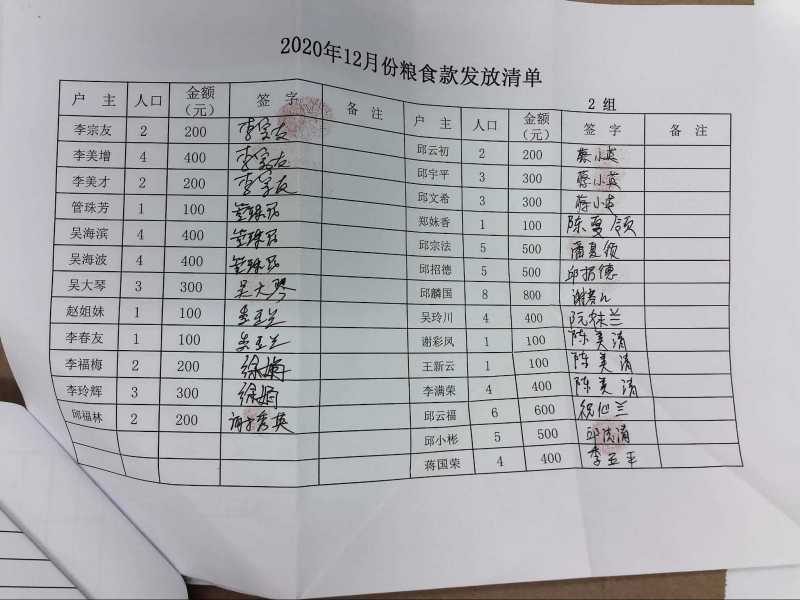 2020年12月份粮食款发放清单
2 组
户 主 人口 金额(元) 签 字 备 注
李宗友 2 200 李宗友
李美增 4 400 李宗友
李美才 2 200 李宗友
管珠芳 1 100 管珠芳
吴海滨 4 400 管珠芳
吴海波 4 400 管珠芳
吴大琴 3 300 吴大琴
赵姐妹 1 100
李春友 1 100
李福梅 2 200 徐娟
李玲辉 3 300 徐娟
邱福林 2 200 谢秀英
户 主 人口 金额(元) 签 字 备 注
邱云初 2 200 蔡小英
邱宇平 3 300 蔡小英
邱文希 3 300 蔡小英
郑妹香 1 100 陈夏领
邱宗法 5 500 潘夏领
邱招德 5 500 邱招德
邱麟国 8 800
吴玲川 4 400 阮林兰
谢彩凤 1 100 陈美清
王新云 1 100 陈美清
李满荣 4 400 陈美清
邱云福 6 600 祝仙兰
邱小彬 5 500 邱法清
蒋国荣 4 400 李五平